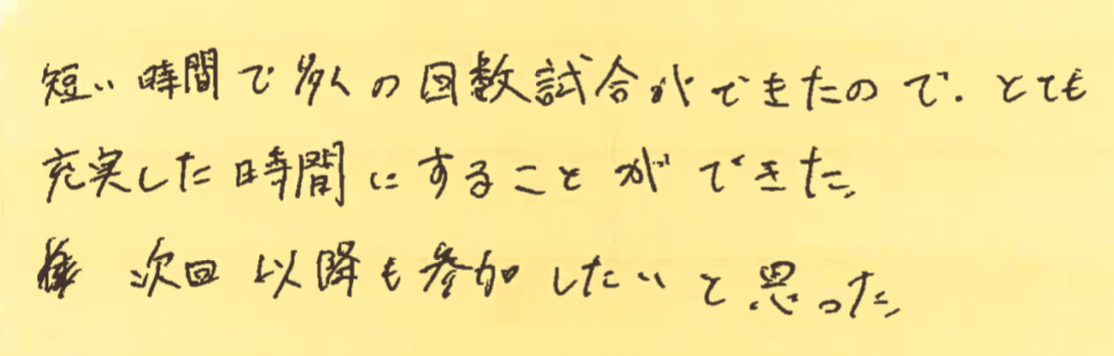 短い時間で多くの回数試合ができたので、とても
充実した時間にすることができた。
次回以降も参加したいと思った。